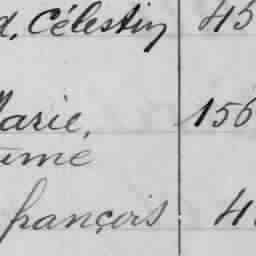 d. Célestin 45
Marie, 156
ume
françois 4